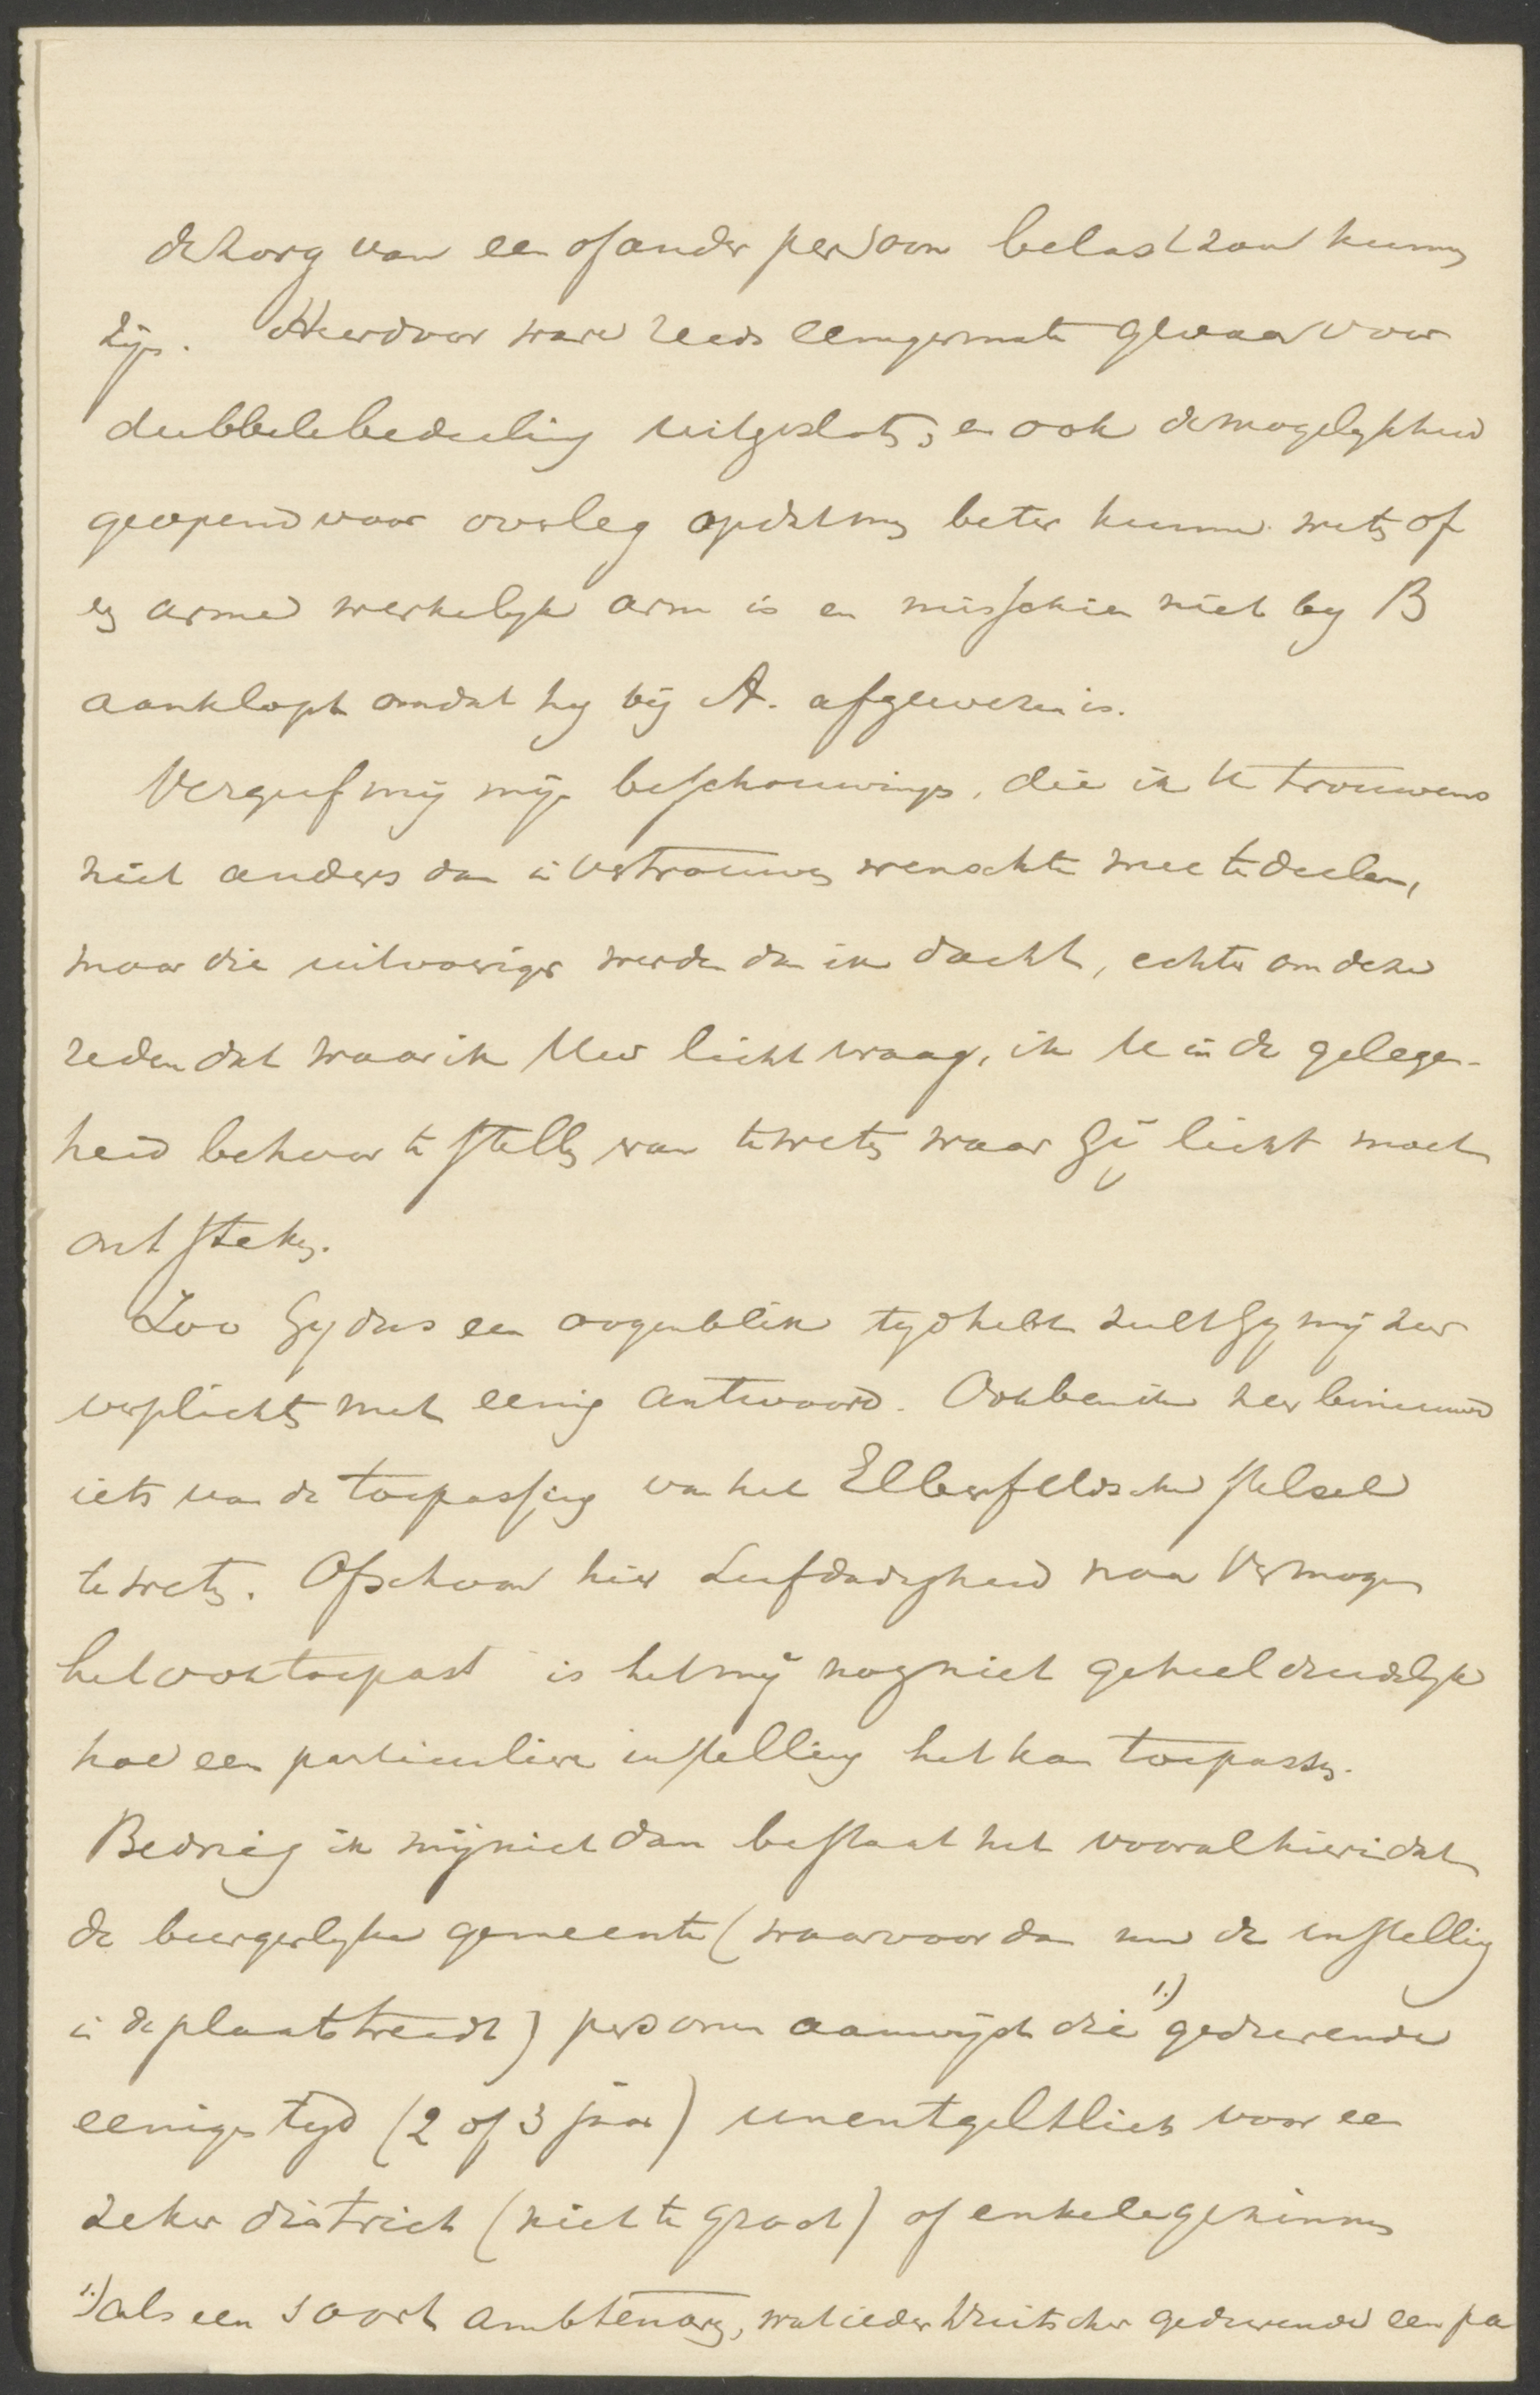 de zorg van een of ander persoon belast zou kunnen
zijn. Hierdoor ware reeds eenigermate gevaar voor
dubbele bedeeling uitgesloten, en ook de mogelykheid
geopend voor overleg opdat men beter kunne weten of
een arme werkelyk arm is en misschien niet by B
aanklopt omdat hy bij A. afgewezen is.
Vergeef mij mijn beschouwingen, die ik U trouwens
niet anders dan in vertrouwen wenschte mee te deelen,
maar die uitvoeriger werden dan ik dacht, echter om deze
reden dat waar ik Uw licht vraag, ik U in de gelegen-
heid behoor te stellen van te weten waar Gij licht moet
ontsteken.
Zoo Gy dus een oogenblik tyd hebt zult Gy mij zeer
verplichten met eenig antwoord. Ook ben ik zeer benieuwd
iets van de toepassing van het Elberfeldsche stelsel
te weten. Ofschoon hier Liefdadigheid naar Vermogen
het ook toepast is het mij nog niet geheel duidelyk
hoe een particuliere instelling het kan toepassen.
Bedrieg ik mij niet dan bestaat het vooral hierin dat
de burgerlyke gemeente (waarvoor dan nu de instelling
in de plaats treedt) personen aanwijst die 1.) gedurende
eenigen tyd (2 of 3 jaar) unentgeltlich voor een
zeker district (niet te groot) of enkele gezinnen
1.) als een soort ambtenaren, wat ieder Duitscher gedurende een pa